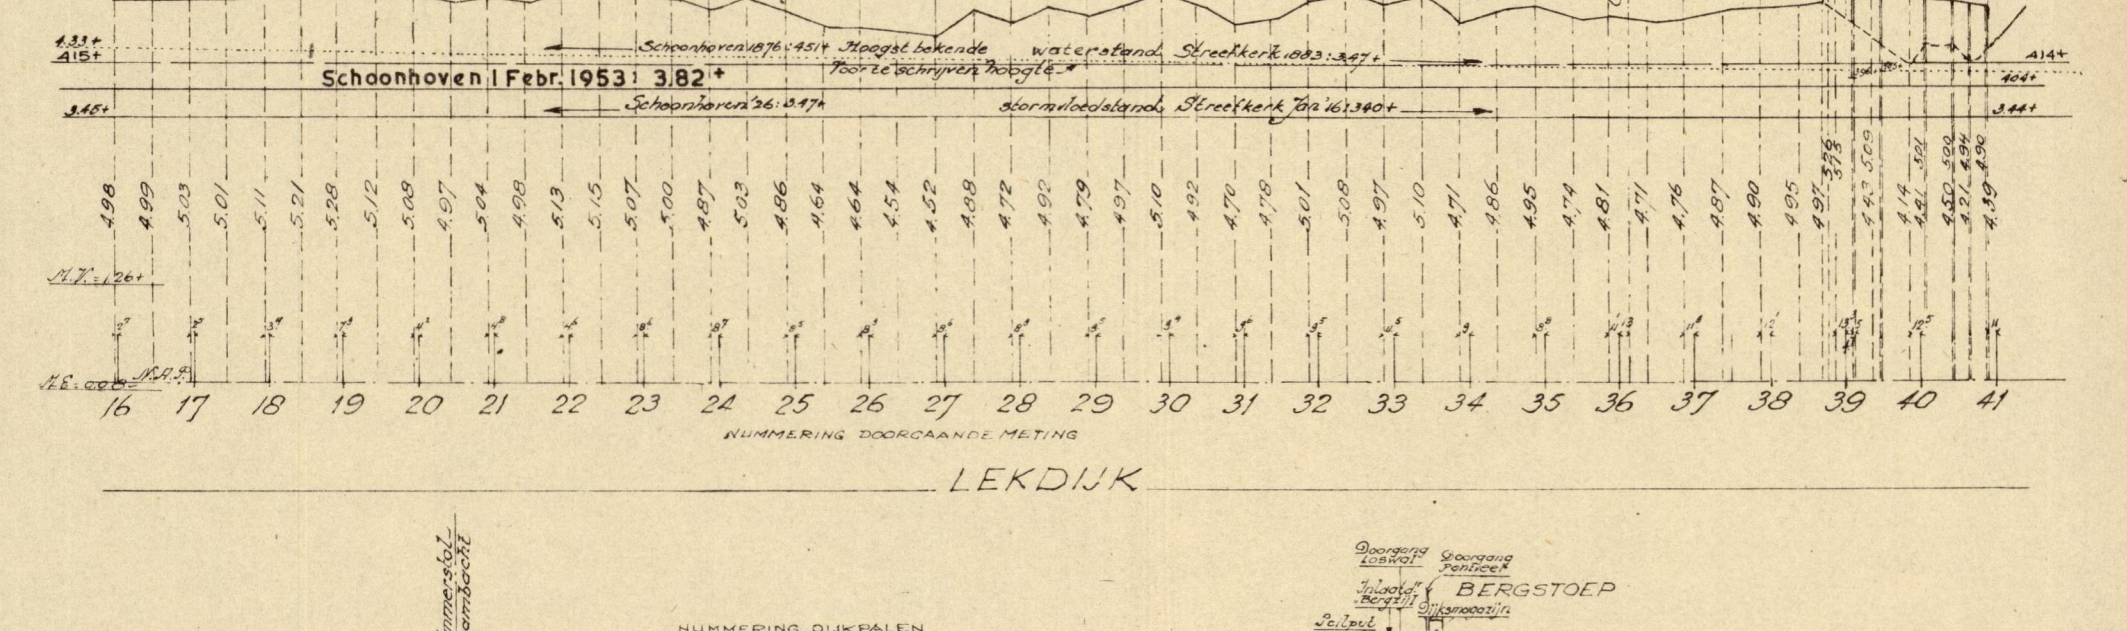 4.33+
4.15+
Schoonhoven 1876: 4.51+ Hoogst bekende waterstand Streefkerk 1883: 3.47+
4.14+
Schoonhoven 1 Febr. 1953: 3.82+
Voor te schrijven hoogte
4.04+
3.45+
Schoonhoven '26: 3.47+ stormvloedstand Streefkerk Jan '16: 3.40+
3.44+
4.98 4.99 5.03 5.01 5.11 5.21 5.28 5.12 5.08 4.97 5.04 4.98 5.13 5.15 5.07 5.00 4.87 5.03 4.86 4.64 4.64 4.54 4.52 4.88 4.72 4.92 4.79 4.97 5.10 4.92 4.70 4.78 5.01 5.08 4.97 5.10 4.71 4.86 4.95 4.74 4.81 4.71 4.76 4.87 4.90 4.95 4.97 5.26 5.73 4.43 5.09 4.14 4.41 5.01 4.50 5.00 4.21 4.94 4.39 4.90
M.V. = 1.26+
N.A.P.
16 17 18 19 20 21 22 23 24 25 26 27 28 29 30 31 32 33 34 35 36 37 38 39 40 41
NUMMERING DOORGAANDE METING
LEKDIJK
mmerstol-
ambacht
Doorgang
Loswal
Doorgang
Pontveer
BERGSTOEP
Bergzijl
Dijksmagazijn
Peilput
NUMMERING DIJKPALEN